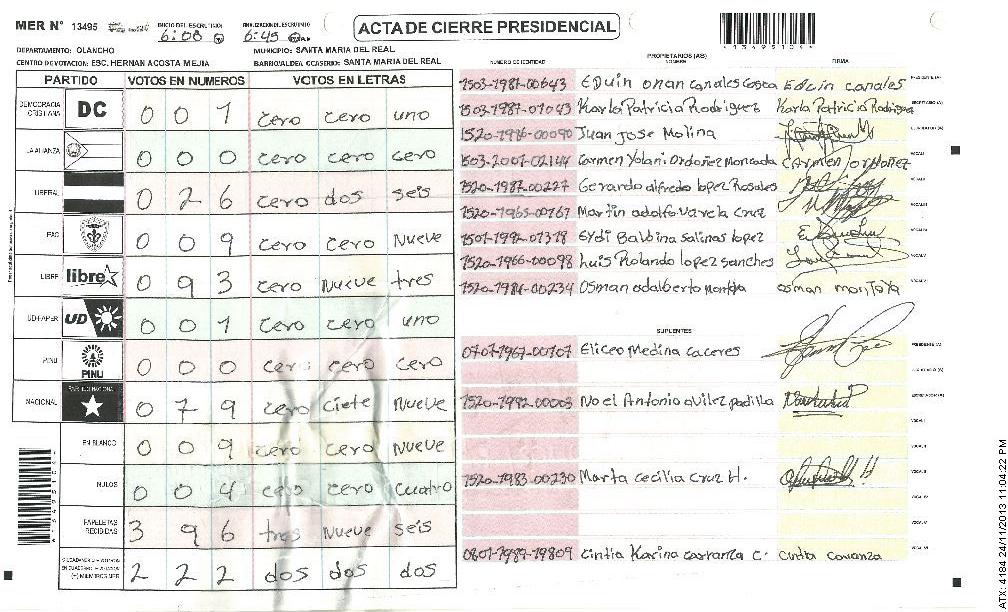 MER N° 13495 INICIO DEL ESCRUTINIO: 6:08 FINALIZACION ESCRUTINIO: 6:45
ACTA DE CIERRE PRESIDENCIAL
13495101
DEPARTAMENTO: OLANCHO MUNICIPIO: SANTA MARIA DEL REAL
CENTRO DE VOTACION: ESC. HERNAN ACOSTA MEJIA BARRIO/ALDEA CASERIO: SANTA MARIA DEL REAL
PARTIDO VOTOS EN NUMEROS VOTOS EN LETRAS
DEMOCRACIA CRISTIANA DC 0 0 1 cero cero uno
LA ALIANZA 0 0 0 cero cero cero
LIBERAL 0 2 6 cero dos seis
PAC 0 0 9 cero cero Nueve
LIBRE libre 0 9 3 cero Nueve tres
UD-FAPER UD 0 0 1 cero cero uno
PINU PINU 0 0 0 cero cero cero
NACIONAL PARTIDO NACIONAL 0 7 9 cero ciete Nueve
EN BLANCO 0 0 9 cero cero Nueve
NULOS 0 0 4 cero cero cuatro
PAPELETAS RECIBIDAS 3 9 6 tres Nueve seis
(+) MIEMBROS MER 2 2 2 dos dos dos
PROPIETARIOS (AS)
NUMERO DE IDENTIDAD NOMBRE FIRMA
1503-1981-00643 Eduin onan canales Edcin canales PRESIDENTE (A)
1503-1987-01043 Karla Patricia Rodriguez Karla Patricia Rodriguez SECRETARIO (A)
Juan Jose Molina ESCRUTADOR (A)
1503-2001-02144 Carmen Yolani Ordoñez Moncada Carmen Ordoñez VOCAL I
1520-1987-00227 Gerardo alfredo lopez Rosales VOCAL II
1520-1965-00167 Martin adolfo varela cruz VOCAL III
Eydi Balbina Salinas lopez VOCAL IV
1520-1966-00098 Luis Rolando lopez sanches VOCAL V
1520-1984-00234 Osman adalberto osman montoya VOCAL VI
SUPLENTES
0707-1967-00107 Eliceo Medina caceres PRESIDENTE (A)
SECRETARIO (A)
1520-1992-00003 Noel Antonio avilez padilla ESCRUTADOR (A)
VOCAL I
VOCAL II
1520-1983-00230 Marta cecilia cruz H. VOCAL III
VOCAL IV
VOCAL V
0801-1989-19809 cintia Karina carranza c. cintia carranza VOCAL VI
ATX: 4184 24/11/2013 11:04:22 PM